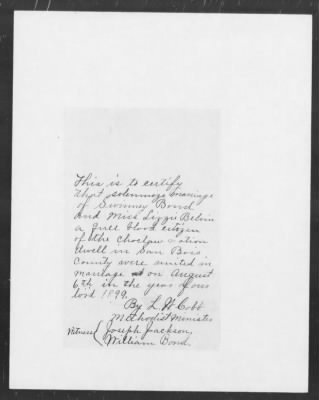 This is to certify
that solemnize marriage
of Swinney Bond
And Miss Lizzie Belvin
a full blood citizen
of the Choctaw nation
dwell in San Bois
County were united in
marriage on August
6th in the year of our
lord 1899.
By L. W. Cobb
Methodist Minister
Witness Joseph Jackson,
William Bond.